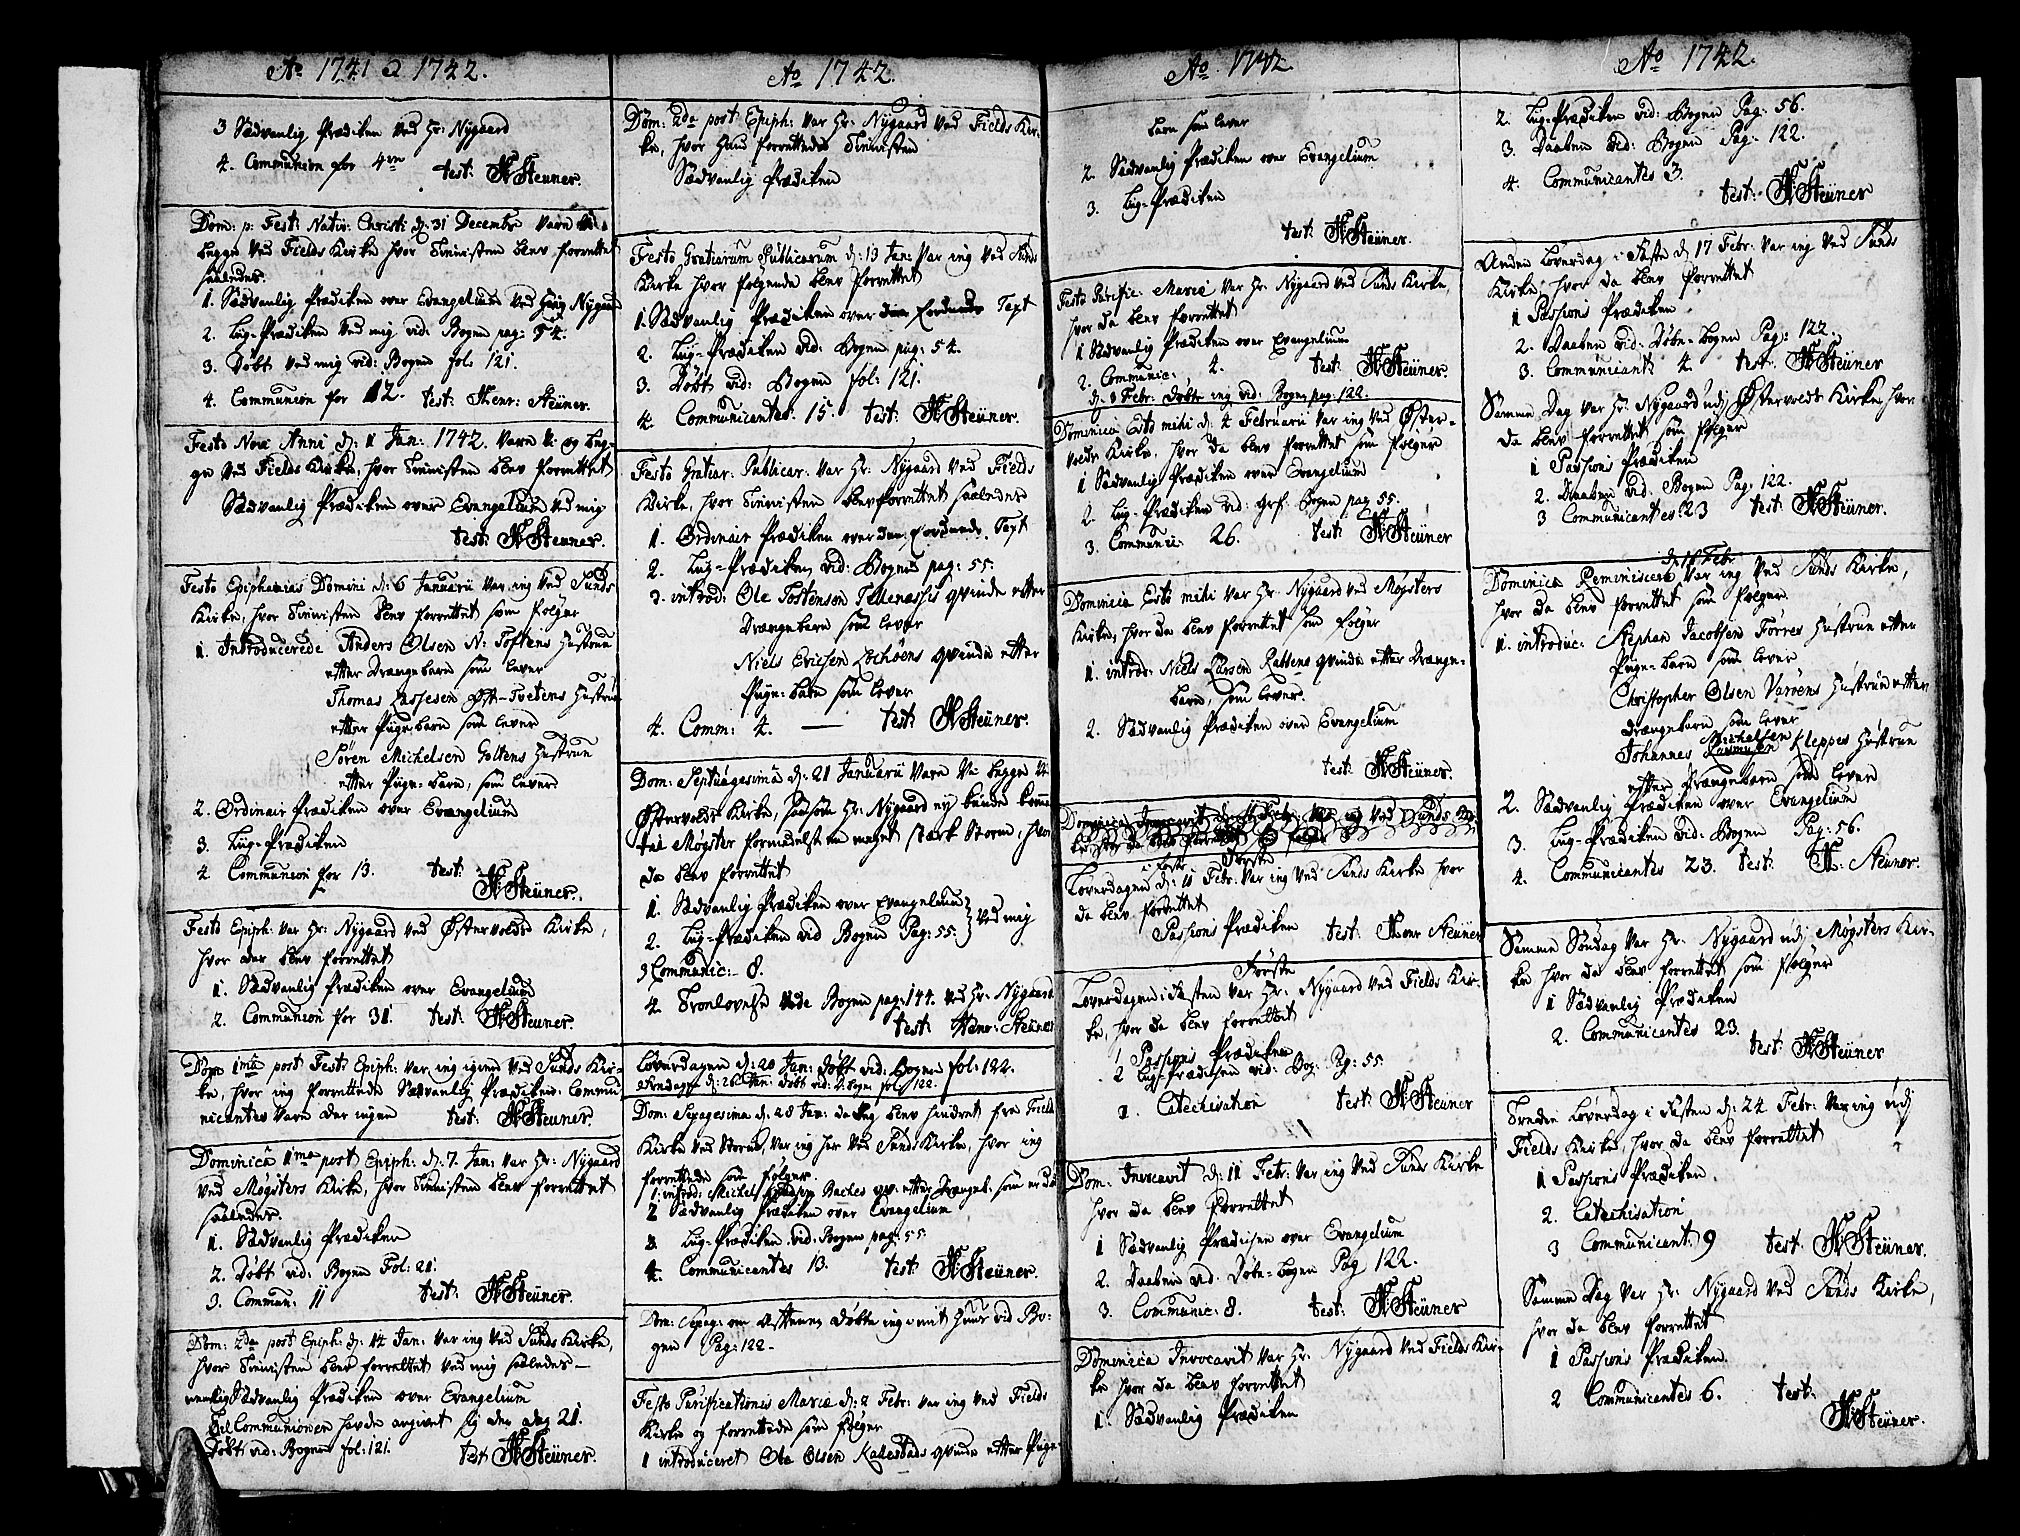 Ao 1741 à 1742.
3 Sædvanlig Prædiken ved Hr: Nÿgaard
4. Communion for 4re test: H Steuner.
Dom: p: Fest: Nativ: Christi d: 31 Decembr Vare
begge ved Fields Kirke hvor Tienisten blev forrettet
saaledes.
1. Sædvanlig Prædiken over Evangelium ved Nÿgaard
2. Liig-Prædiken ved mig vid: Bogen pag: 54.
3. Døbt ved mig vid: Bogen fol: 121.
4. Communion for 12. test: Henr: Steüner.
Festo Novi Anni d: 1 Jan: 1742. Vare Vi og beg-
ge ved Fields Kirke, hvor Tienisten blev forrettet
Sædvanlig Prædiken over Evangelium ved mig
test: H Steuner.
Festo Epiphanias Domini d: 6 Januarii Var ieg ved Sunds
Kirke, hvor Tienisten blev forrettet som følger
1. Introducerede Anders Olsen N: Toftens Hustrue
efter Drængebarn som lever
Thomas Lassesen Øst-Tvetens Hustrue
efter Pigebarn som lever
Søren Michelsen Goltens Hustrue
efter Pige-barn, som lever
2. Ordinair Prædiken over Evangelium
3. Liig-Prædiken
4 Communion for 13. test:
H Steüner.
Festo Epiph: var Hr: Nÿgaard ved Østervolds Kirke,
hvor der blev forrettet
1. Sædvanlig Prædiken over Evangelium
2. Communion for 31. test: H Steuner.
Dom 1ma post Fest: Epiph: var ieg igien ved Sunds Kir-
ke, hvor ieg forrettede Sædvanlig Prædiken: Commu-
nicantes vare der ingen test: H Steuner.
Dominica 1ma post Epiph: d: 7. Jan: var Hr: Nÿgaard
ved Møgsters Kirke, hvor Tienisten blev forrettet
saaledes.
1. Sædvanlig Prædiken
2. Døbt vid: Bogen Fol: 21.
3. Commun: 11 test: H Steüner.
Dom: 2da post Epiph: d: 14 Jan: var ieg ved Sunds Kirke,
hvor Tienisten blev forrettet ved mig saaledes-
nemlig Sædvanlig Prædiken over Evangelium
Til Communionen havde angivet sig den dag 21.
Døbt vid: Bogen fol: 121. test H Steüner.
Ao 1742.
Dom: 2da post Epiph: var Hr: Nÿgaard ved Fields Kir-
ke, hvor Hand forrettede Tienisten
Sædvanlig Prædiken
Festo Gratiarum Publicarum d: 19 Jan: Var ieg ved Sunds
Kirke hvor følgende blev forrettet
1. Sædvanlig Prædiken over Text
2. Liig-Prædiken vid: Bogen pag: 54.
3. Døbt vid: Bogen fol: 121.
4. Communicantes: 15. test: H Steüner.
Festo Gratiar: Publicar: var Hr: Nÿgaard ved Fields
Kirke, hvor Tienisten blev forrettet saaledes
1. Ordinair Prædiken over Text
2. Liig-Prædiken vid: Bogen pag: 55.
3. introd: Ole Tostensen Qvinde efter
Drængebarn som lever
Niels Ericsen Qvinde efter
Pige-barn som lever
4. Comm: 4. — test: H Steüner.
Dom: Septuagesima d: 21 Januarii Vare Vi begge ved
Østervolds Kirke, saasom Hr: Nÿgaard eÿ kunde komme
til Møgster formedelst en meget stærk Storm, hvor
da blev forrettet
1. Sædvanlig Prædiken over Evangelium
2. Liig-Prædiken vid Bogen Pag: 55. } ved mig
3 Communic:- 8.
4. Tronlovelse vide Bogen pag: 144. ved Hr: Nÿgaard
test: Henr: Steüner
Løverdagen d: 20 Jan: Døbt vid: Bogen fol: 122.
d: 26 Jan: Døbt vid: Bogen fol: 122.
Dom: Sexagesima d: 28 Jan: da ieg blev hindret fra Fields
Kirke ved Storm, var ieg her ved Sunds Kirke, hvor ieg
forrettede som følger
1. introd: Michel Baches qv: efter Drængeb. som er død
2 Sædvanlig Prædiken over Evangelium
3. Liig-Prædiken vid: Bogen pag: 55.
4. Communicantes 13. test: H Steüner.
Dom: Sexag: om Aftenen Døbte ieg i mit Huus vid Bo-
gen Pag: 122-
Festo Purificationis Mariæ d: 2 Febr: var ieg ved Fields
Kirke og forrettede som følger
1 introduceret Ole Olsen Kallestads qvinde efter Pige-
Ao 1742
barn som lever
2. Sædvanlig Prædiken over Evangelium
3. Liig-Prædiken
test: H Steüner.
Festo Purific: Mariæ Var Hr: Nÿgaard ved Sunds Kirke,
hvor da blev forrettet
1 Sædvanlig Prædiken over Evangelium
2. Communic: 2. test: H Steüner.
d: 3 Febr: Døbte ieg vid: Bogen pag: 122.
Dominica Esto mihi d: 4 Februarii var ieg ved Øster-
volds Kirke, hvor da blev forrettet som følger
1 Sædvanlig Prædiken over Evangelium
2. Liig-Prædiken vid: Bogen pag 55.
3. Communic: 26. test: H Steüner
Dominica Esto mihi var Hr: Nÿgaard ved Møgsters
Kirke, hvor da blev forrettet som følger
1. introd: Niels Larsen qvinde efter Drænge-
barn, som lever.
2. Sædvanlig Prædiken over Evangelium
test: H Steüner.
Første
i Faste
Løverdagen d: 11 Febr: var ieg ved Sunds Kirke hvor
da blev forrettet
Passions Prædiken test: Henr Steüner
Første
Løverdagen i Fasten var Hr: Nÿgaard ved Fields Kir-
ke, hvor da blev forrettet
1 Passions Prædiken
2 Liig-Prædiken vid: Bog: Pag: 55
1. Catechisation test: H Steüner
Dom: Invocavit d: 11 Febr: var ieg ved Sunds Kirke
hvor da blev forrettet
1 Sædvanlig Prædiken over Evangelium
2. Daaben vid: Døbe-bogen Pag 122.
3. Communic: 8. test: H Steüner
Dominica Invocavit var Hr: Nÿgaard ved Fields Kir-
ke hvor da blev forrettet
1. Sædvanlig Prædiken
Ao 1742.
2. Liig-Prædiken vid: Bogen Pag: 56.
3. Daaben vid: Bogen Pag: 122.
4. Communicantes 3.
test: H Steüner
Anden Løverdag i Faste d: 17 Febr: var ieg ved Sunds
Kirke, hvor da blev forrettet
1 Passions Prædiken
2. Daaben vid: Døbe-bogen Pag: 122.
3. Communicants 4. test: H Steüner
Samme Dag var Hr: Nÿgaard udj Østervolds Kirke hvor
da blev forrettet som følger
1 Passions Prædiken
2. Daaben vid: Bogen Pag: 122.
3 Communicantes: 23 test: H Steüner.
d: 18 Febr:
Dominica Reminiscere var ieg ved Sunds Kirke,
hvor da blev forrettet som følger
1. introduc: Stephan Jacobsen Torres Hustrue efter
Pige-barn som lever
Christopher Olsen Varøens Hustrue efter
Drængebarn som lever
Michelsen
Johannes Rasmusen Kleppes Hustrue
efter Drængebarn som lever
2. Sædvanlig Prædiken over Evangelium
3. Liig-Prædiken vid: Bogen Pag: 56.
4. Communicantes 23. test: H. Steüner.
Samme Søndag var Hr: Nÿgaard udj Møgsters Kir-
ke hvor da blev forrettet som følger
1 Sædvanlig Prædiken
2. Communicantes 23.
test: H Steüner
Tredie Løverdag i Fasten d: 24 Febr: var ieg udj
Fields Kirke, hvor da blev forrettet
1 Passions Prædiken.
2. Catechisation
3 Communicant: 9 test. H Steüner.
Samme Dag var Hr: Nÿgaard ved Sunds Kirke,
hvor da blev forrettet
1 Passions Prædiken.
2 Communicantes 6. test:
H Steüner.